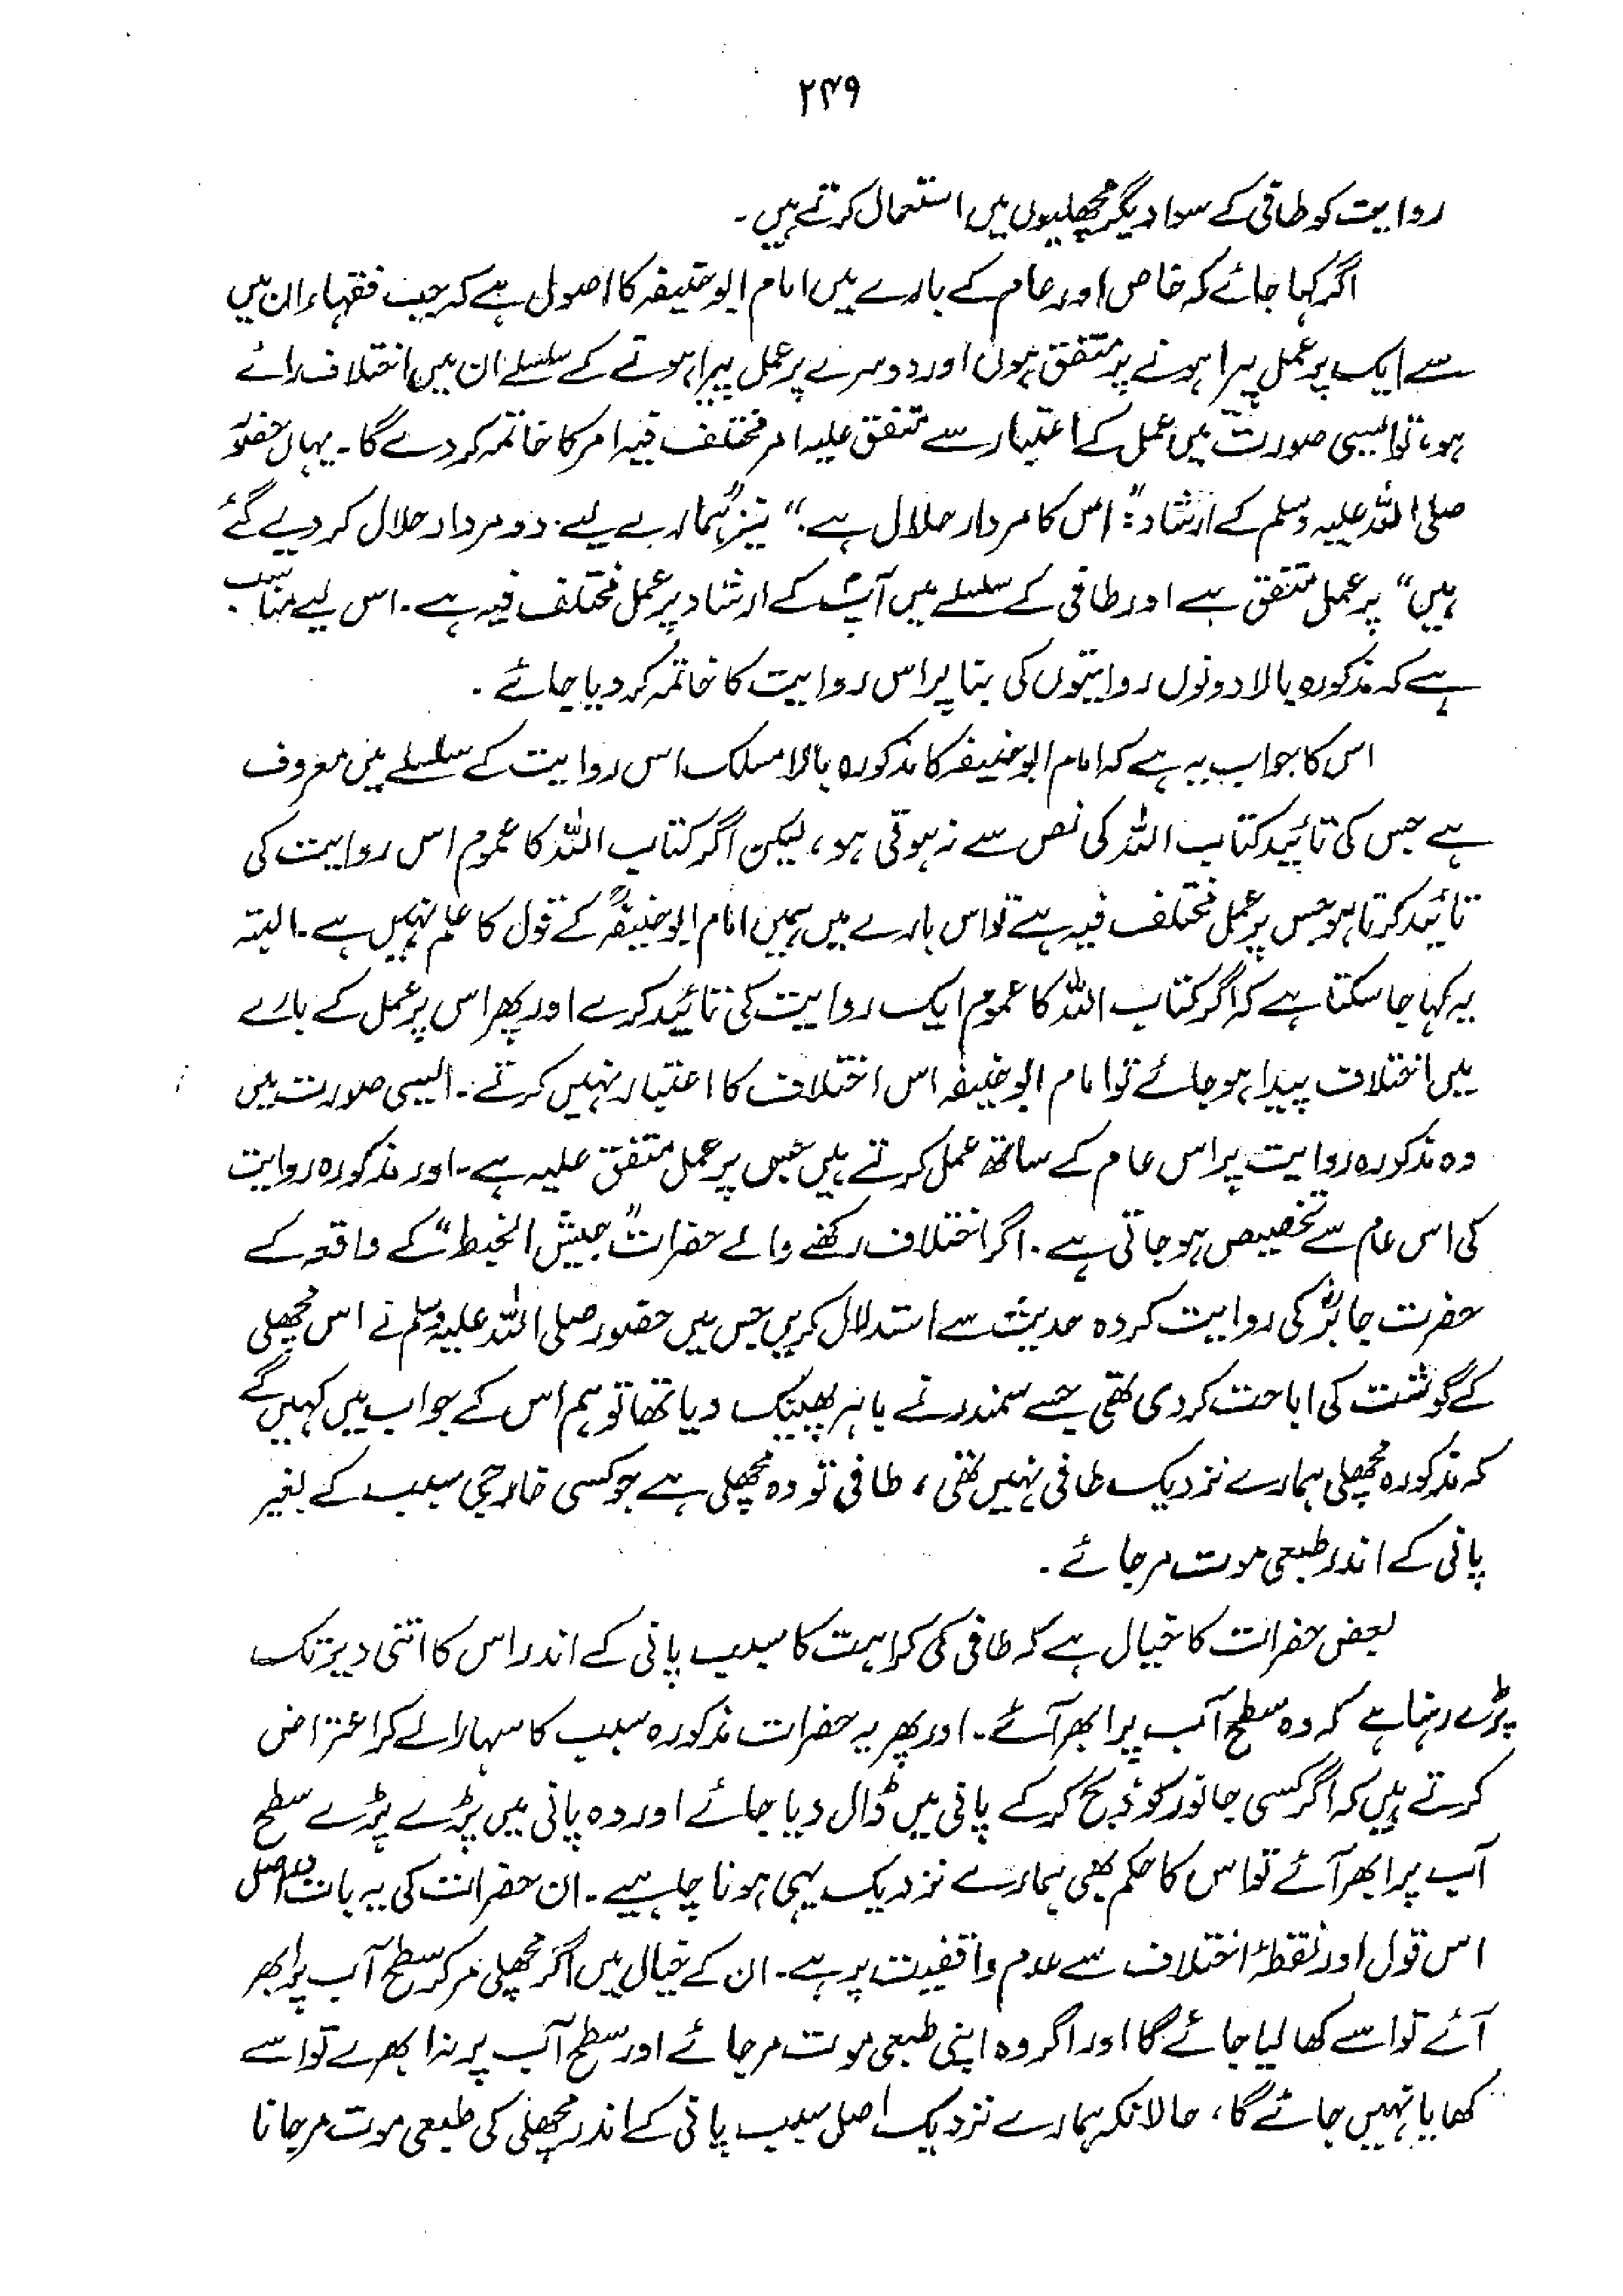 ۲۴۹
روایت کو طافی کے سوا دیگر مچھلیوں میں استعمال کرتے ہیں۔
اگر کہا جائے کہ خاص اور عام کے بارے میں امام ابوحنیفہ کا اصول ہے کہ جب فقہاء ان میں
سے ایک پر عمل پیرا ہونے پر متفق ہوں اور دوسرے پر عمل پیرا ہونے کے سلسلے ان میں اختلاف رائے
ہو، تو ایسی صورت میں عمل کے اعتبار سے متفق علیہ امر مختلف فیہ امر کا خاتمہ کر دے گا۔ یہاں حضورؐ
صلی اللہ علیہ وسلم کے ارشاد: "اس کا مردار حلال ہے۔" نیز "ہمارے لیے دو مردار حلال کر دیے گئے
ہیں" پر عمل متفق ہے اور طافی کے سلسلے میں آپؐ کے ارشاد پر عمل مختلف فیہ ہے۔ اس لیے مناسب
ہے کہ مذکورہ بالا دونوں روایتوں کی بنا پر اس روایت کا خاتمہ کر دیا جائے۔
اس کا جواب یہ ہے کہ امام ابوحنیفہ کا مذکورہ بالا مسلک اس روایت کے سلسلے میں معروف
ہے جس کی تائید کتاب اللہ کی نص سے نہ ہوتی ہو، لیکن اگر کتاب اللہ کا عموم اس روایت کی
تائید کرتا ہو جس پر عمل مختلف فیہ ہے تو اس بارے میں ہمیں امام ابوحنیفہؒ کے قول کا علم نہیں ہے۔ البتہ
یہ کہا جا سکتا ہے کہ اگر کتاب اللہ کا عموم ایک روایت کی تائید کرے اور پھر اس پر عمل کے بارے
میں اختلاف پیدا ہو جائے تو امام ابوحنیفہ اس اختلاف کا اعتبار نہیں کرتے۔ ایسی صورت میں
وہ مذکورہ روایت پر اس عام کے ساتھ عمل کرتے ہیں جس پر عمل متفق علیہ ہے۔ اور مذکورہ روایت
کی اس عام سے تخصیص ہو جاتی ہے۔ اگر اختلاف رکھنے والے حضرات "جیش الخبط" کے واقعہ کے
حضرت جابرؓ کی روایت کردہ حدیث سے استدلال کریں جس میں حضور صلی اللہ علیہ وسلم نے اس مچھلی
کے گوشت کی اباحت کر دی تھی جسے سمندر نے باہر پھینک دیا تھا تو ہم اس کے جواب میں کہیں گے
کہ مذکورہ مچھلی ہمارے نزدیک طافی نہیں تھی، طافی تو وہ مچھلی ہے جو کسی خارجی سبب کے بغیر
پانی کے اندر طبعی موت مر جائے۔
بعض حضرات کا خیال ہے کہ طافی کی کراہت کا سبب پانی کے اندر اس کا اتنی دیر تک
پڑے رہنا ہے کہ وہ سطح آب پر ابھر آئے۔ اور پھر یہ حضرات مذکورہ سبب کا سہارا لے کر اعتراض
کرتے ہیں کہ اگر کسی جانور کو ذبح کر کے پانی میں ڈال دیا جائے اور وہ پانی میں پڑے پڑے سطح
آب پر ابھر آئے تو اس کا حکم بھی ہمارے نزدیک یہی ہونا چاہیے۔ ان حضرات کی یہ بات دراصل
اس قول اور نقطۂ اختلاف سے عدم واقفیت پر ہے۔ ان کے خیال میں اگر مچھلی مر کر سطح آب پر ابھر
آئے تو اسے کھا لیا جائے گا اور اگر وہ اپنی طبعی موت مر جائے اور سطح آب پر نہ ابھرے تو اسے
کھایا نہیں جائے گا، حالانکہ ہمارے نزدیک اصل سبب پانی کے اندر مچھلی کی طبعی موت مر جانا